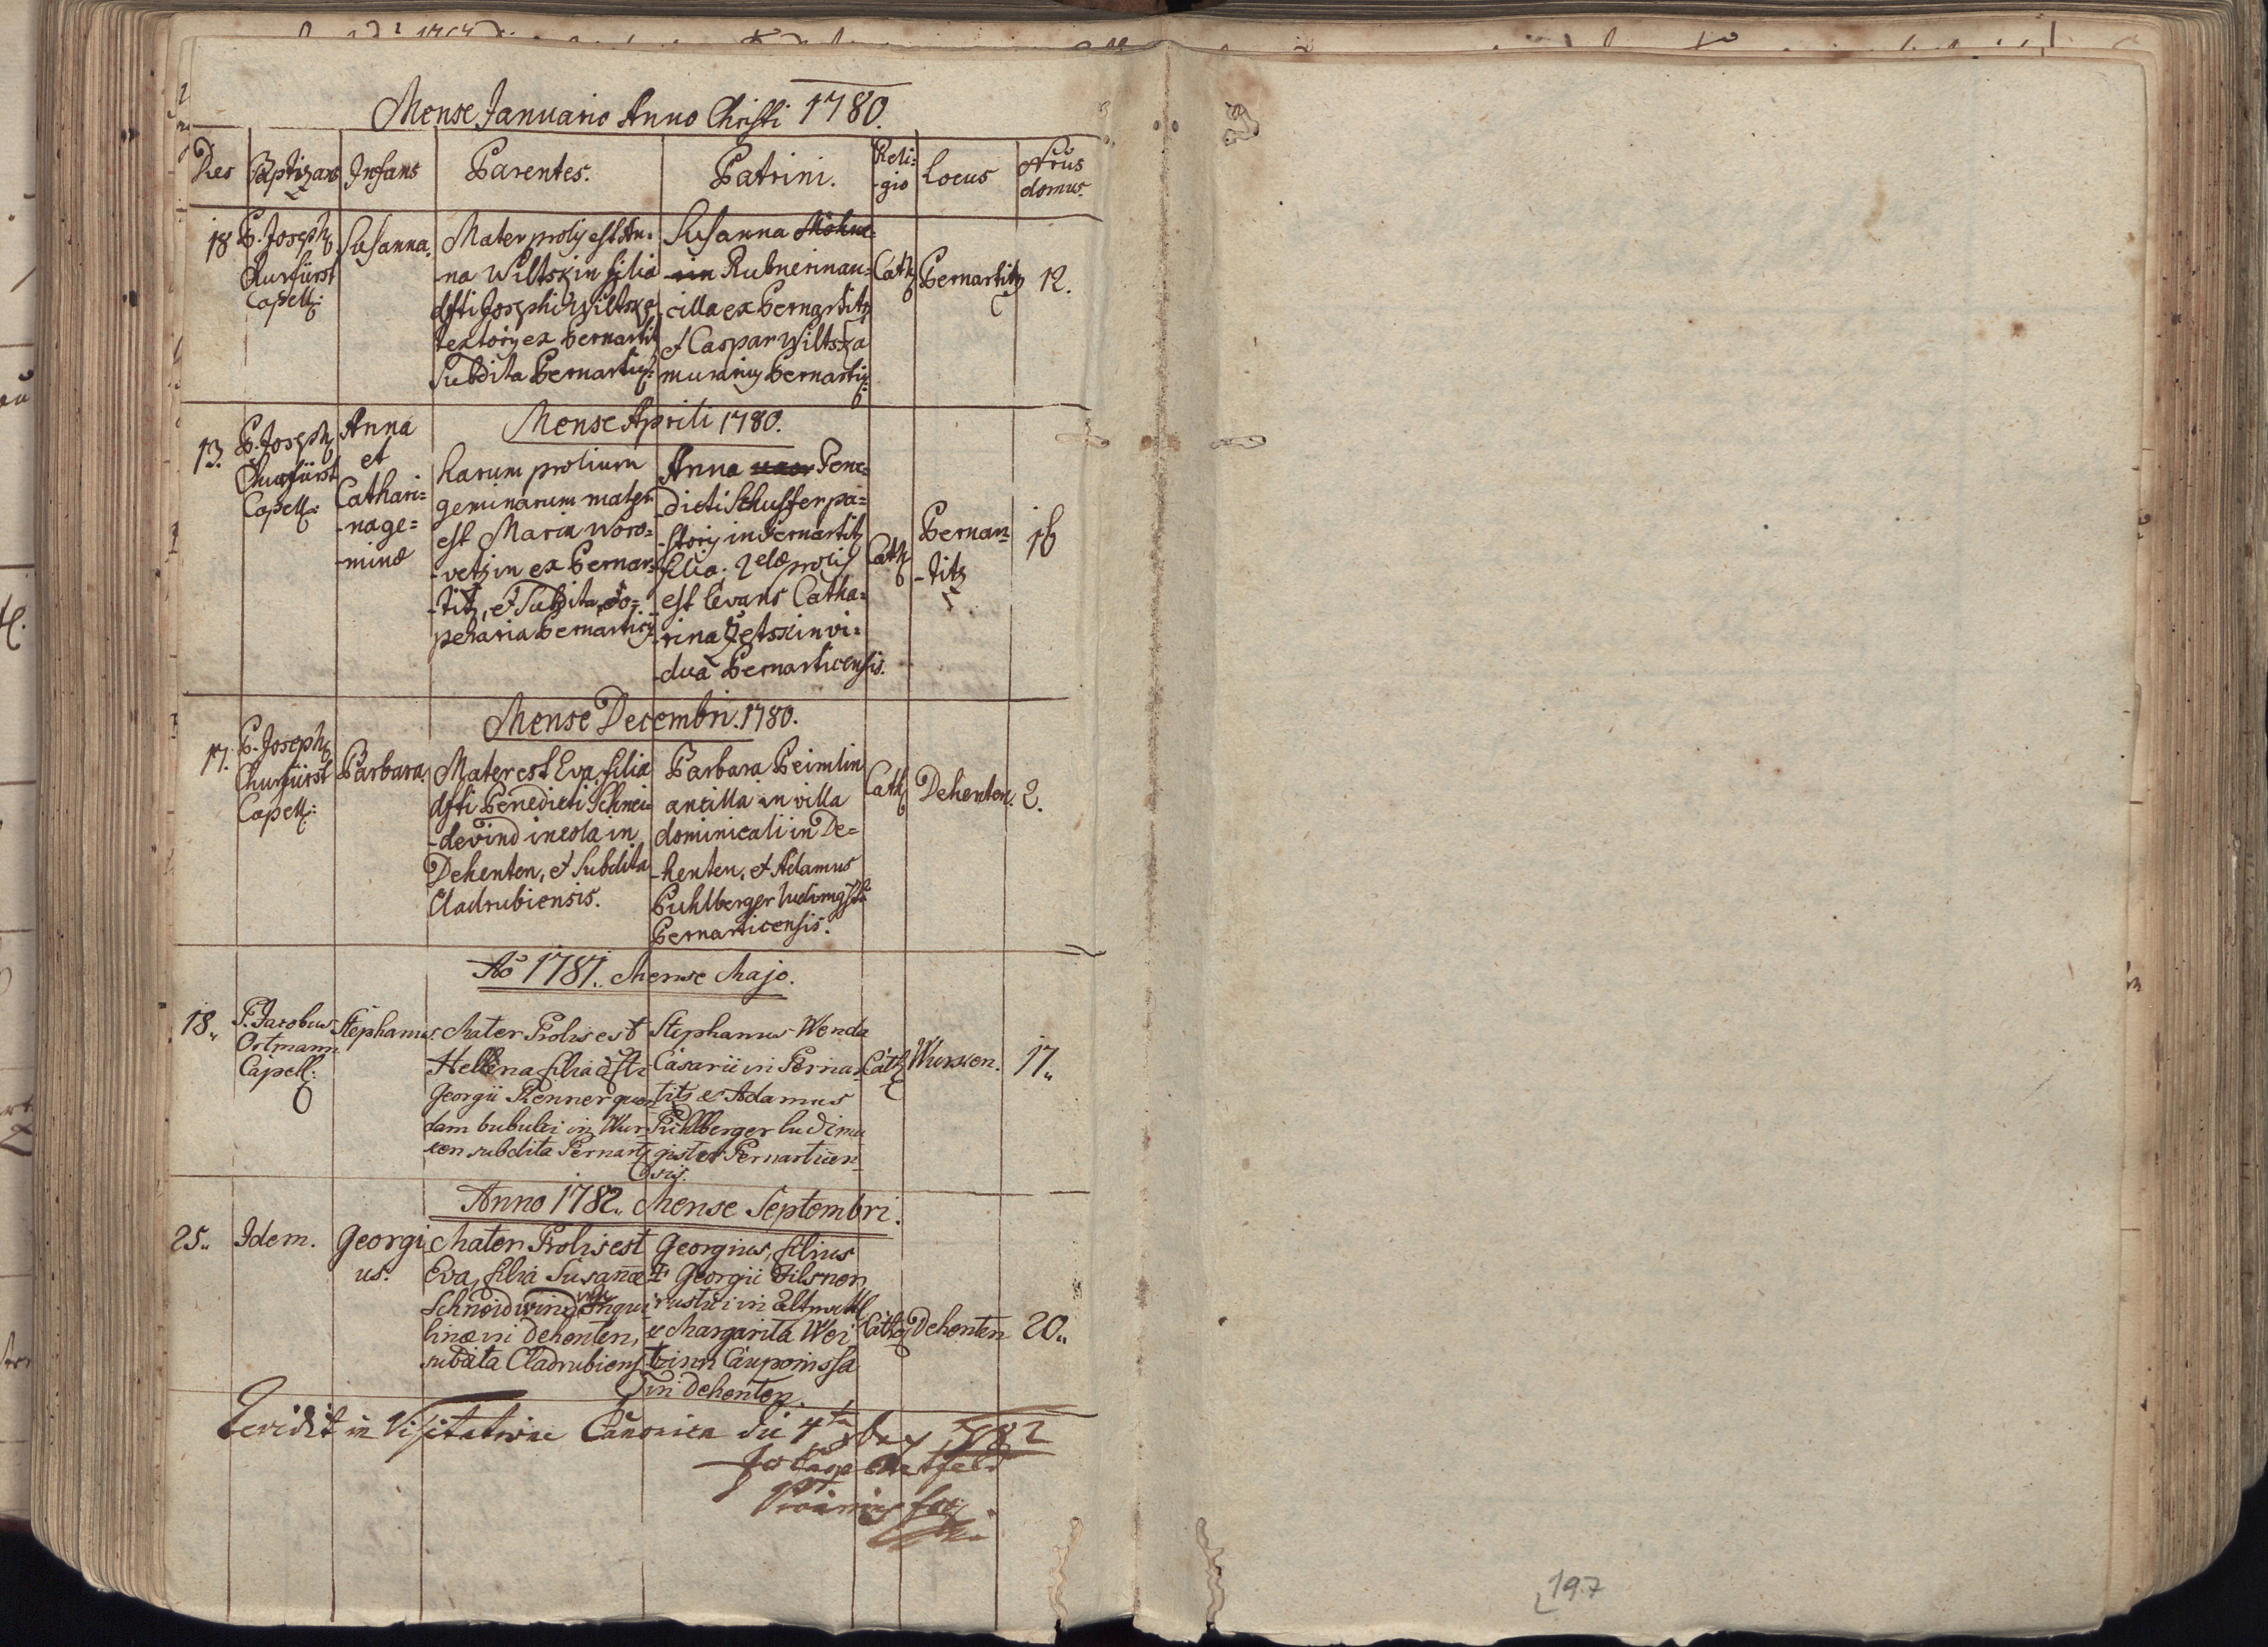 Mense Januario Anno Christi 1780.
Dies Baptizans Infans Parentes. Patrini. Reli=
-gio Locus Nrus
domus.
18 P. Joseph
Churfürst
Capell:
Susanna.
Mater prolis est An=
-na Wiltskin filia
dfti Josephi Wiltska
textoris ex Bernartitz
Subdita Bernartic:
Susanna Mohne=
-rin Rubnerin an=
cilla ex Bernartitz
et Caspar Wiltska
murarius Bernartic:
Cath
Bernartitz
12.
Mense Aprili 1780.
13. P. Joseph
Churfürst
Capell:
Anna
et
Cathari=
-na ge=
-minæ
harum prolium
geminarum mater
est Maria Woro=
-vetzin ex Bernar=
-titz, et Subdita
Bernartic:
Anna uxor Bene=
dicti Schusser pa=
-storis in Bernartitz
filia. 2dæ prolis
est levans Catha=
-rina Zetskin vi=
-dua Bernarticensis.
Cath
Bernar=
-titz
16
Mense Decembri. 1780.
17. P. Joseph
Churfürst
Capell:
Barbara.
Mater est Eva filia
dfti Benedicti Schnei=
-dewind incola in
Dehenten, et Subdita
Cladrubiensis.
Barbara Beimlin
ancilla in villa
dominicali in De=
-henten, et Adamus
Buhlberger ludimgstr
Bernarticensis.
Cath
Dehenten. 2.
Aõ 1781. Mense Majo.
18. P. Jacobus
Ortmann
Capell:
Stephanus.
Mater Prolis est
Hellena filia dfti
Georgii Renner quon
dam bubulci in Wur
ken subdita Pernartz
Stephanus Wenda
Casarii in Pernar
titz et Adamus
Puhlberger ludima
gister Pernarticen
sis.
Cath
Wurken.
17.
Anno 1782. Mense Septembri.
25. Idem.
Georgi
us.
Mater Prolis est
Eva, filia Susanæ
Schneidwind
linæ in Dehenten,
subdita Cladrubiens
Georgius, filius
Georgii Pilsner
rustici in Altmettl
et Margarita Wei
tzinn Cauponissa
in Dehenten.
Cath
Dehenten
20.
vidit in Visitatione Canonica die 4ta 782
197